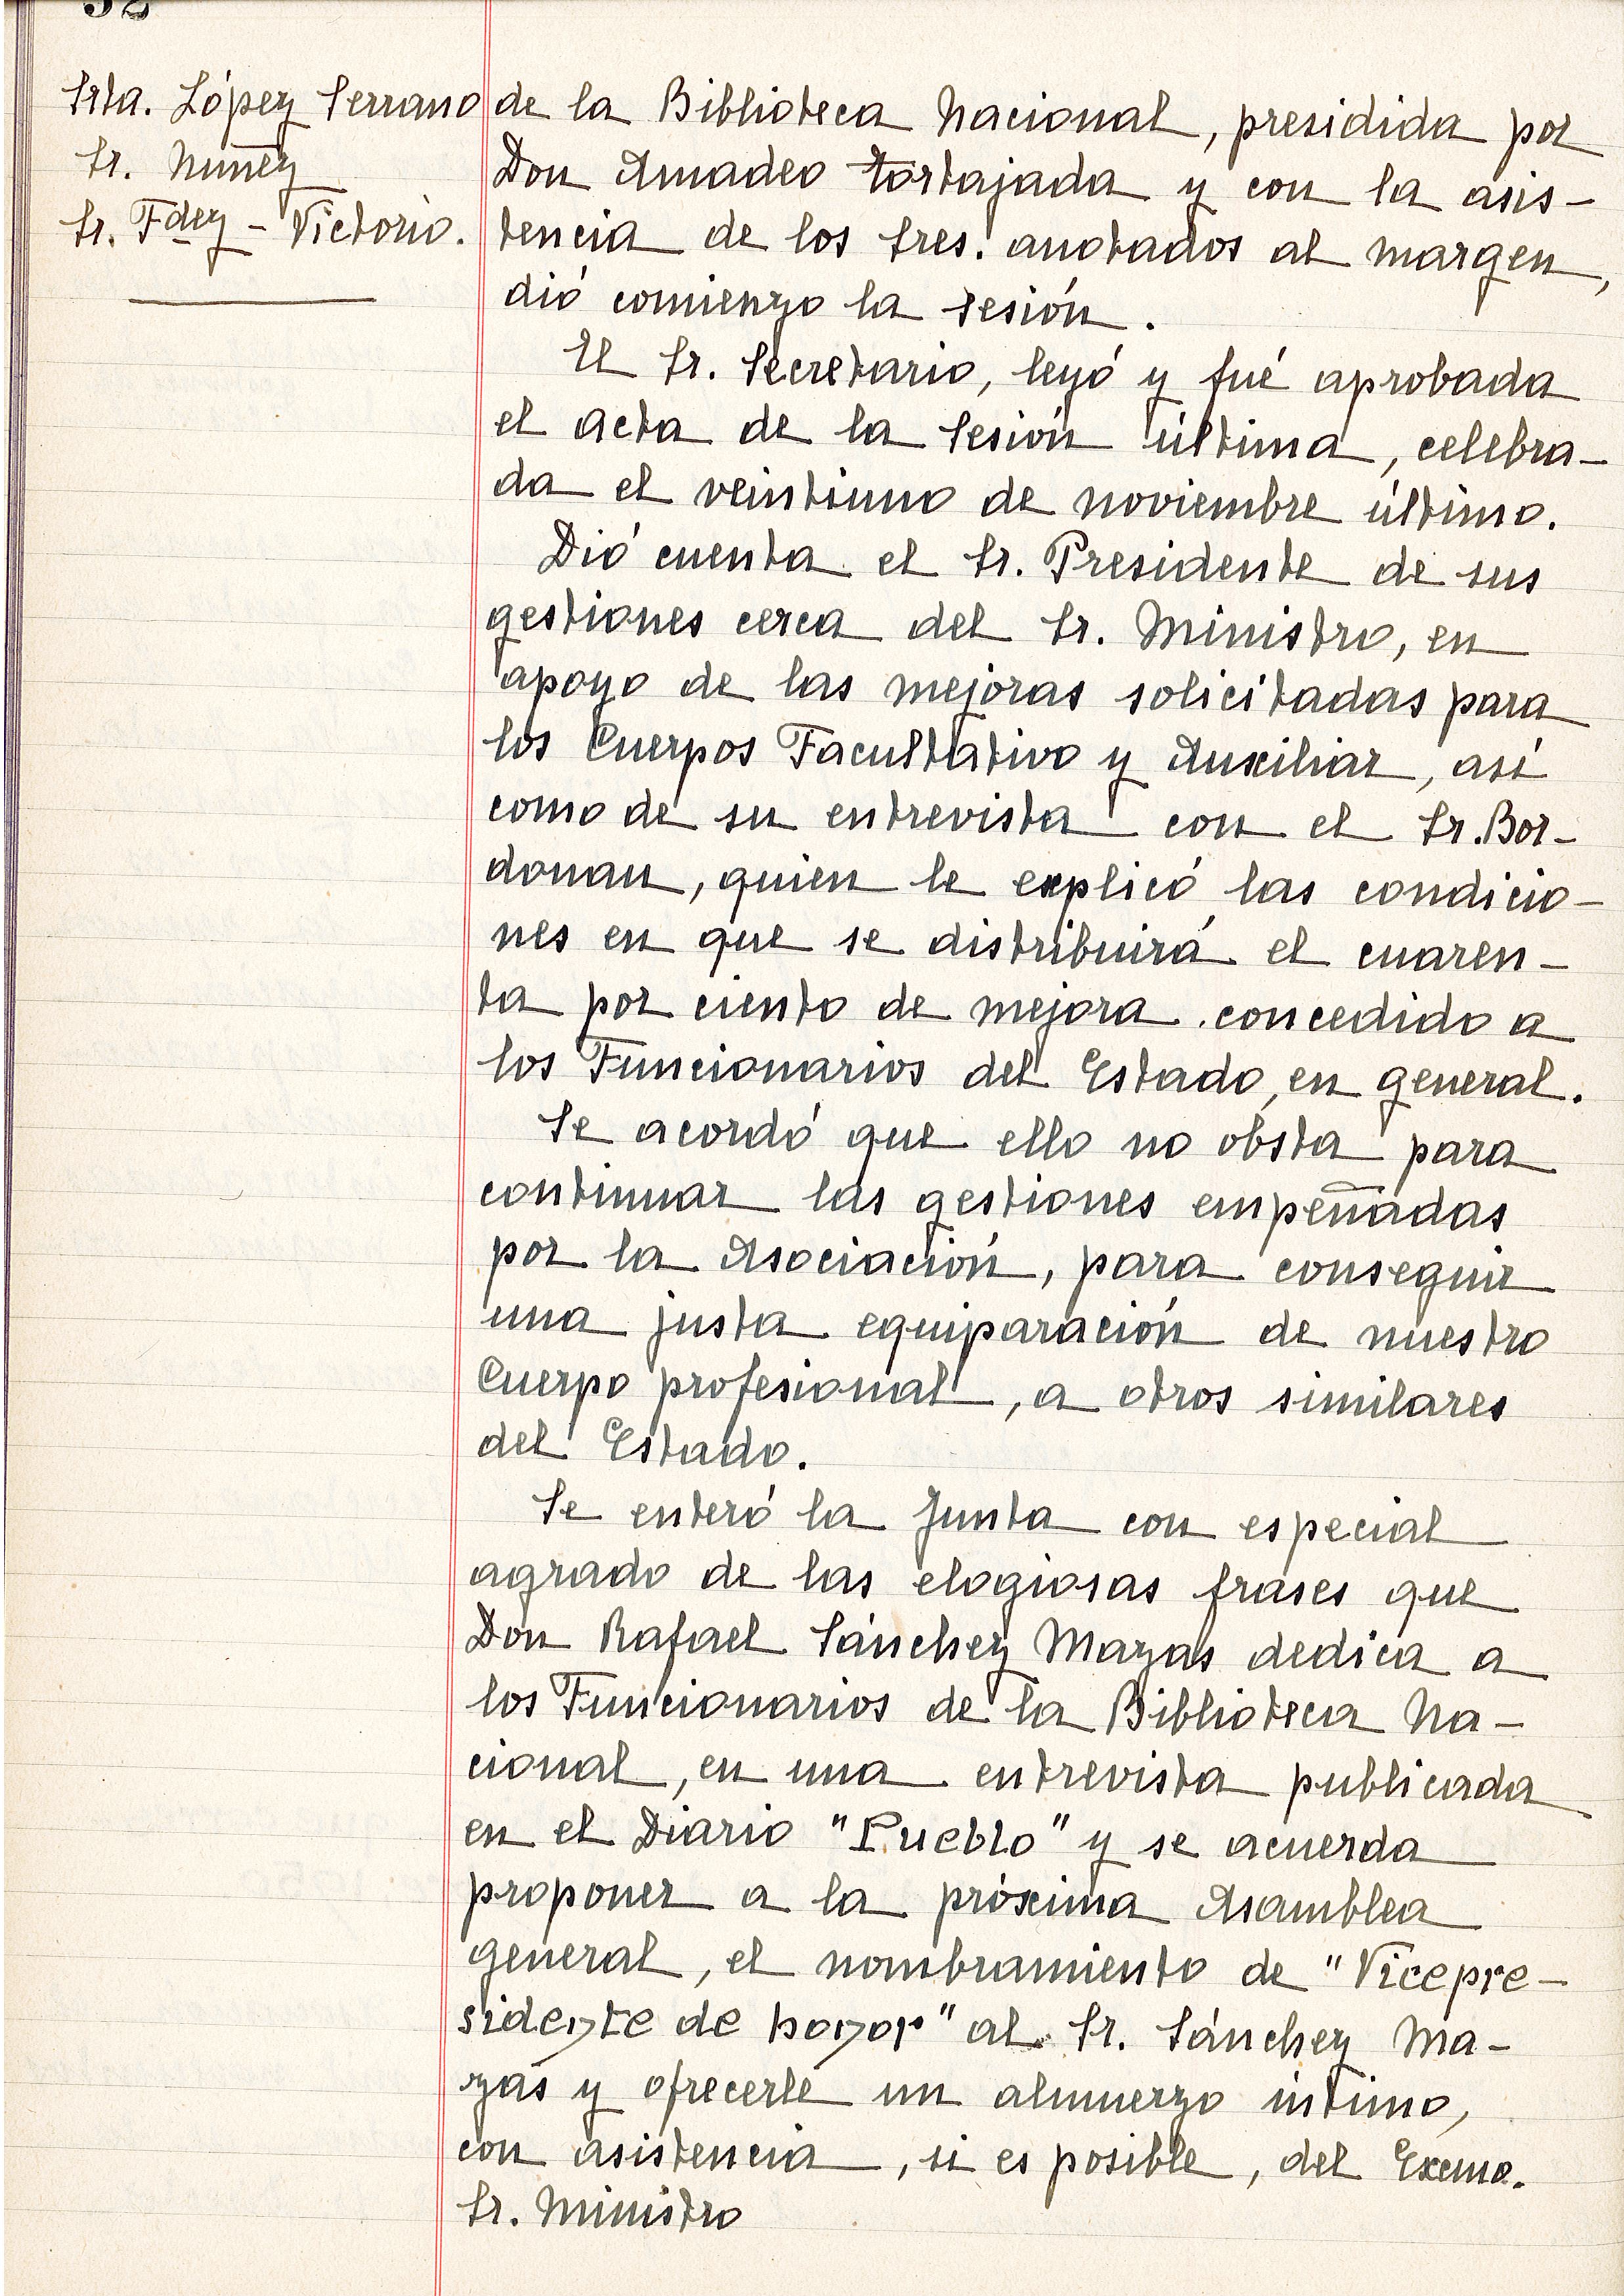 Srta. López Serrano
Sr. Nuñez
Sr. Fdez - Victorio.
de la Biblioteca Nacional, presidida por
Don Amadeo Tortajada y con la asis-
tencia de los Sres. anotados al margen,
dió comienzo la sesión.
El Sr. Secretario, leyó y fué aprobada
el acta de la Sesión última, celebra-
da el veintiuno de noviembre último.
Dió cuenta el Sr. Presidente de sus
gestiones cerca del Sr. Ministro, en
apoyo de las mejoras solicitadas para
los Cuerpos Facultativo y Auxiliar, asi
como de su entrevista con el Sr. Bor-
donau, quien le explicó las condicio-
nes en que se distribuirá el cuaren-
ta por ciento de mejora concedido a
los Funcionarios del Estado, en general.
Se acordó que ello no obsta para
continuar las gestiones empeñadas
por la Asociación, para conseguir
una justa equiparación de nuestro
Cuerpo profesional, a otros similares
del Estado.
Se enteró la Junta con especial
agrado de las elogiosas frases que
Don Rafael Sánchez Mazas dedica a
los Funcionarios de la Biblioteca Na-
cional, en una entrevista publicada
en el Diario "Pueblo" y se acuerda
proponer a la próxima Asamblea
general, el nombramiento de "Vicepre-
sidente de honor" al Sr. Sánchez Ma-
zas y ofrecerle un almuerzo íntimo,
con asistencia, si es posible, del Excmo.
Sr. Ministro